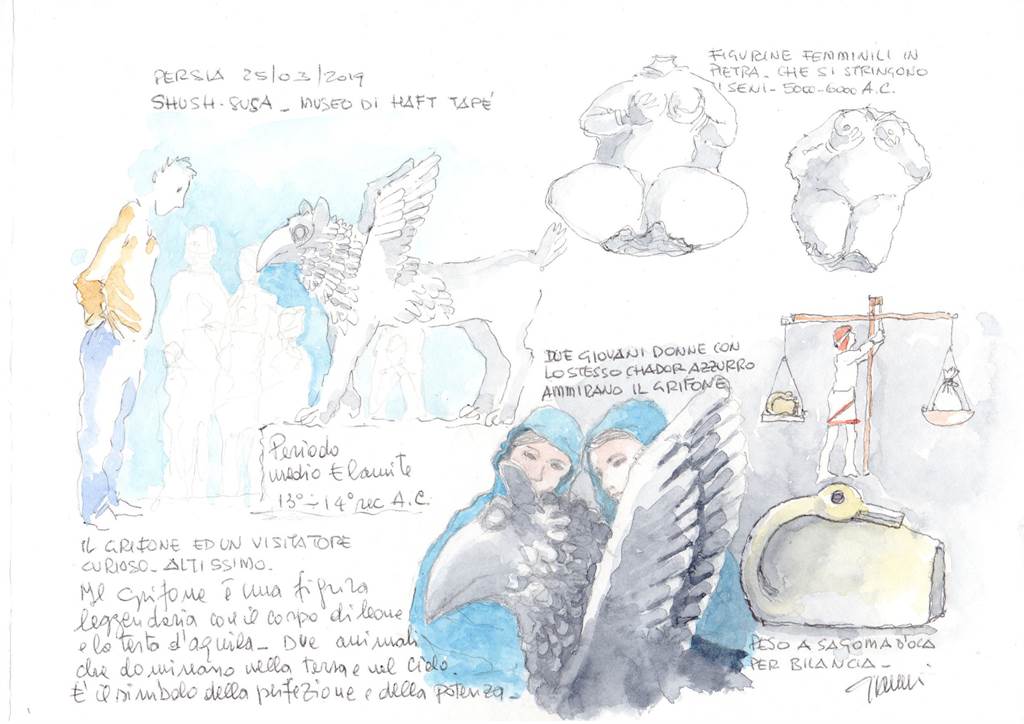 PERSIA 25/03/2019
SHUSH-SUSA - MUSEO DI HAFT TAPÉ
FIGURINE FEMMINILI IN
PIETRA - CHE SI STRINGONO
I SENI - 5000-6000 A.C.
DUE GIOVANI DONNE CON
LO STESSO CHADOR AZZURRO
AMMIRANO IL GRIFONE
Periodo
medio Elamite
13°÷14° sec A.C.
IL GRIFONE ED UN VISITATORE
CURIOSO - ALTISSIMO.
Il Grifone è una figura
leggendaria con il corpo di leone
e la testa d'aquila - Due animali
che dominano nella terra e nel cielo.
E' il simbolo della perfezione e della potenza -
PESO A SAGOMA D'OCA
PER BILANCIA -